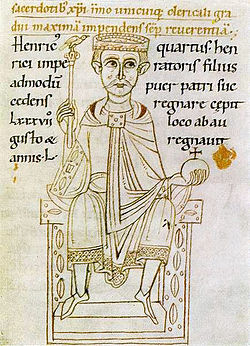 sacerdotib; xp̄i. immo unicuiq; clericali gra
dui maximā impendens sēp reuerentiā.
Henric quartus hen
rici impe ratoris filius
admodū puer patri suc
cedens regnare cepit
lxxxvii loco ab au
gusto & regnauit
annis. L.